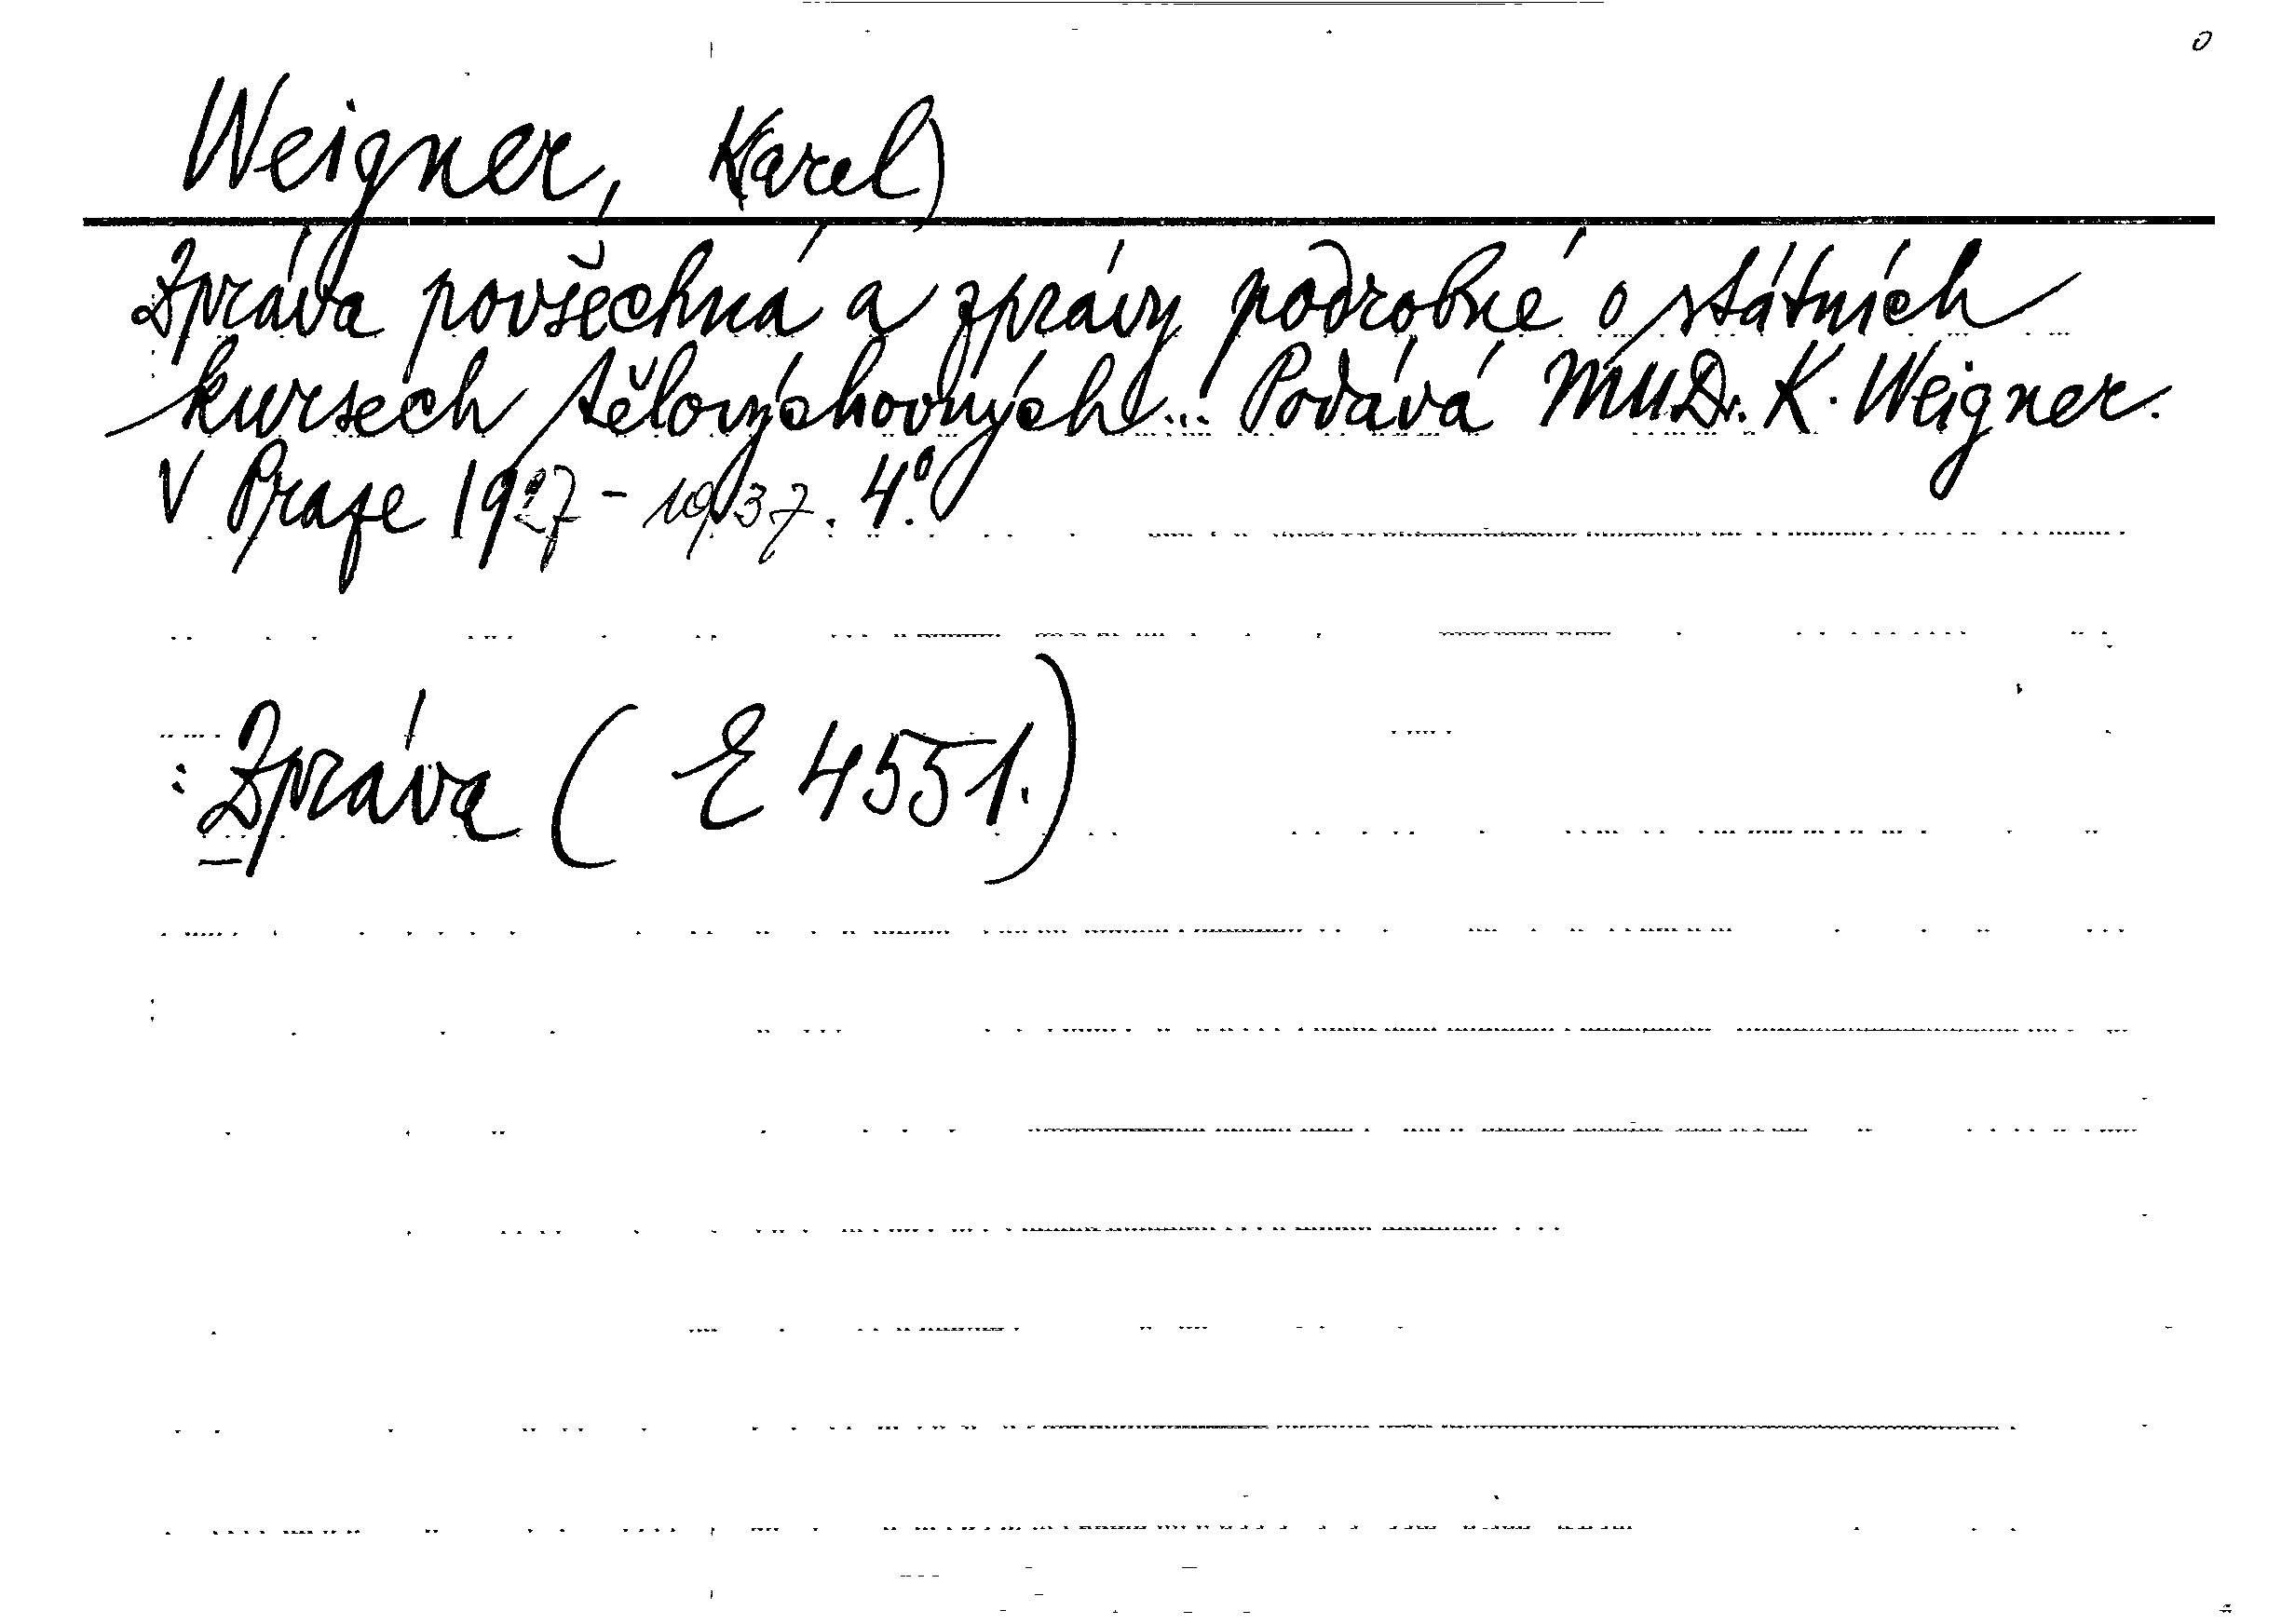 Weigner, Karel)
Zpráva povšechná a zprávy podrobné o státních
kursech tělovýchovných... Podává MUDr. K. Weigner.
V Praze 1927 - 1937. 4°.
: Zpráva ( E 4551.)